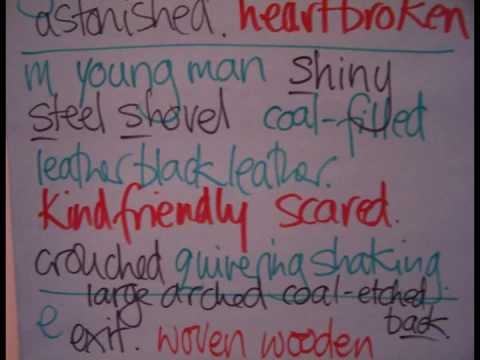 astonished. heartbroken
m young man Shiny
steel shovel coal-filled
leather black leather.
kind friendly scared.
crouched quivering shaking.
large arched coal-etched
e exit. woven wooden back.